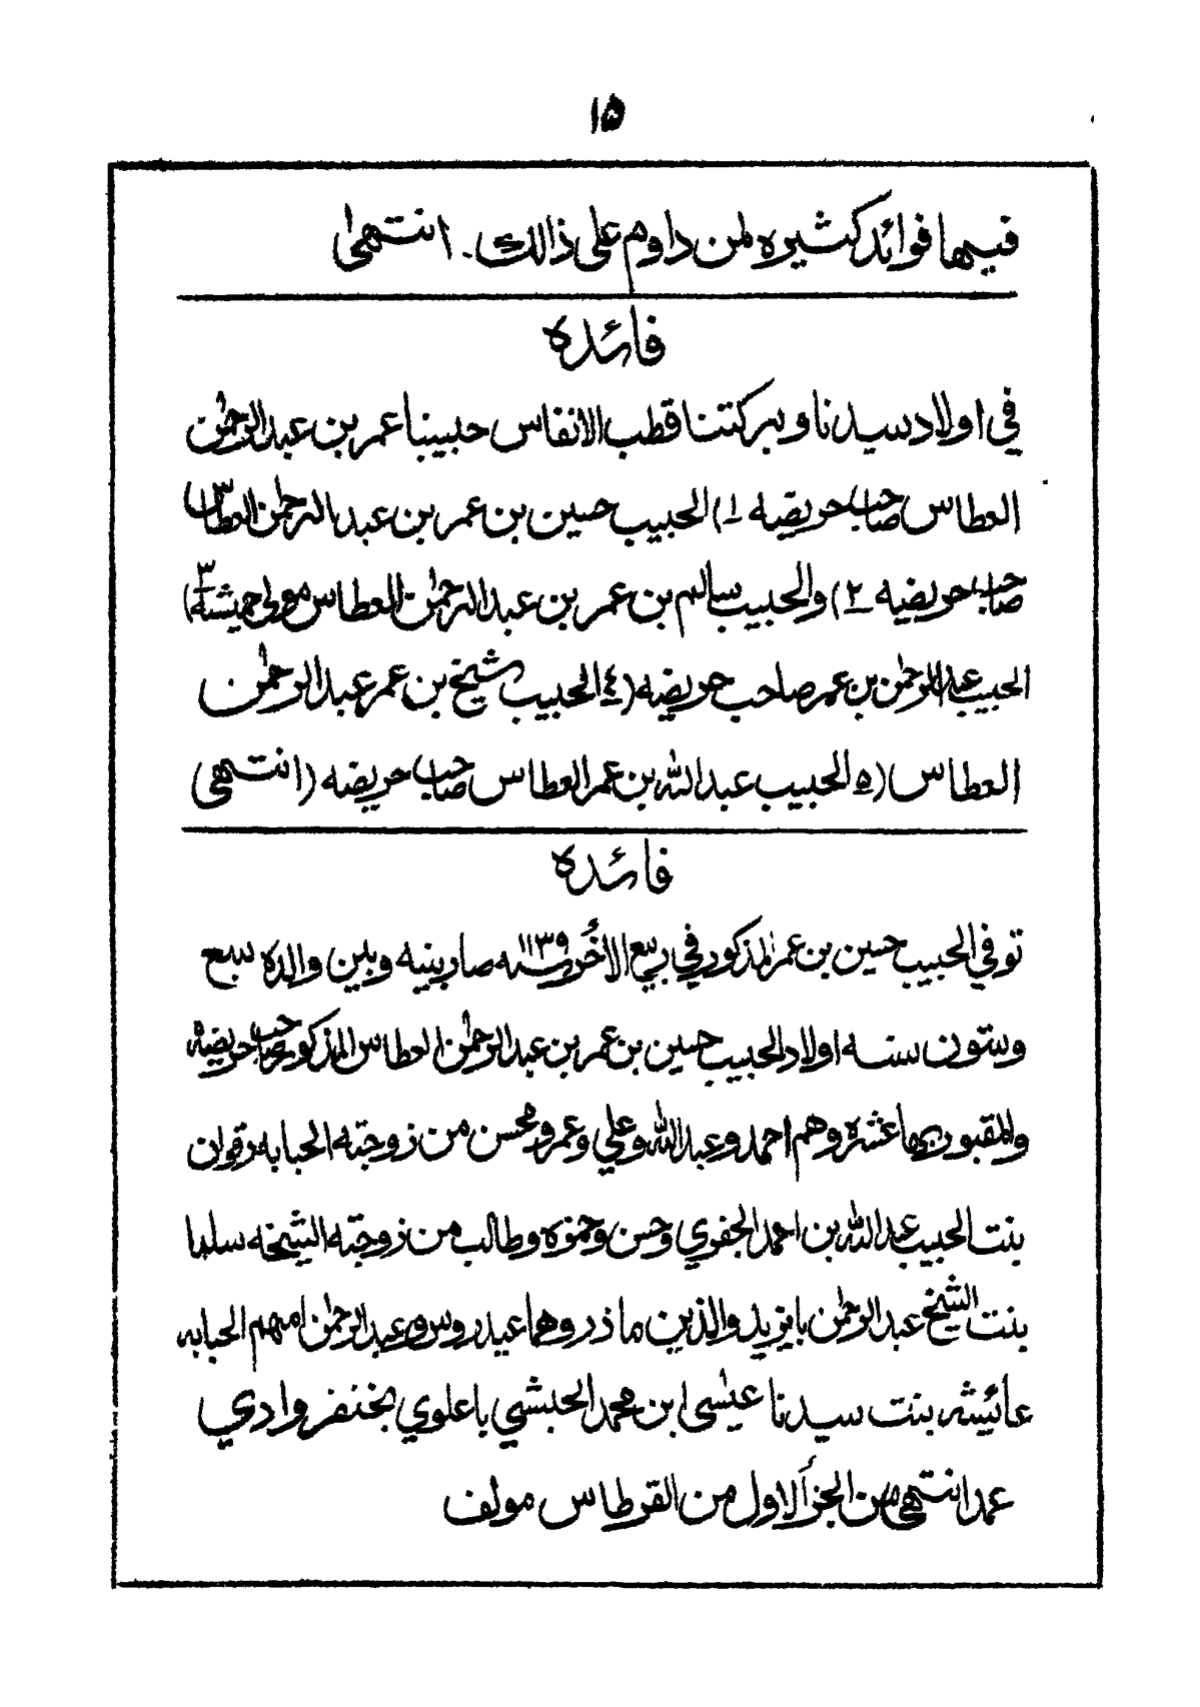 ١٥
فيها فوائد كثيره لمن داوم على ذالك. انتهى
فائده
في اولاد سيدنا وبركتنا قطب الانفاس حبيبنا عمر بن عبدالرحمٰن
العطاس صاحب حريضه ١) الحبيب حسين بن عمر بن عبدالرحمٰن العطاس
صاحب حريضه ٢) والحبيب سالم بن عمر بن عبدالرحمٰن العطاس مولى حميشه ٣)
الحبيب عبدالرحمٰن بن عمر صاحب حريضه (٤ الحبيب شيخ بن عمر عبدالرحمٰن
العطاس (٥ الحبيب عبدالله بن عمر العطاس صاحب حريضه (انتهى
فائده
توفي الحبيب حسين بن عمر المذكور في ربيع الأخر سنه ١١٣٩ صار بينه وبين والده سبع
وستون سنه اولاد الحبيب حسين بن عمر بن عبدالرحمٰن العطاس المذكور صاحب حريضه
والمقبور بها عشره وهم احمد وعبدالله وعلي وعمر ومحسن من زوجته الحبابه رقوان
بنت الحبيب عبدالله بن احمد الجفري وحسن وحمزه وطالب من زوجته الشيخه سلما
بنت الشيخ عبدالرحمٰن بايزيد والذين ماذروهما عيدروس وعبدالرحمٰن امهم الحبابه
عائيشه بنت سيدنا عيسٰى ابن محمد الحبشي باعلوي بخنفر وادي
عمد انتهى من الجزأ الاول من القرطاس مولف